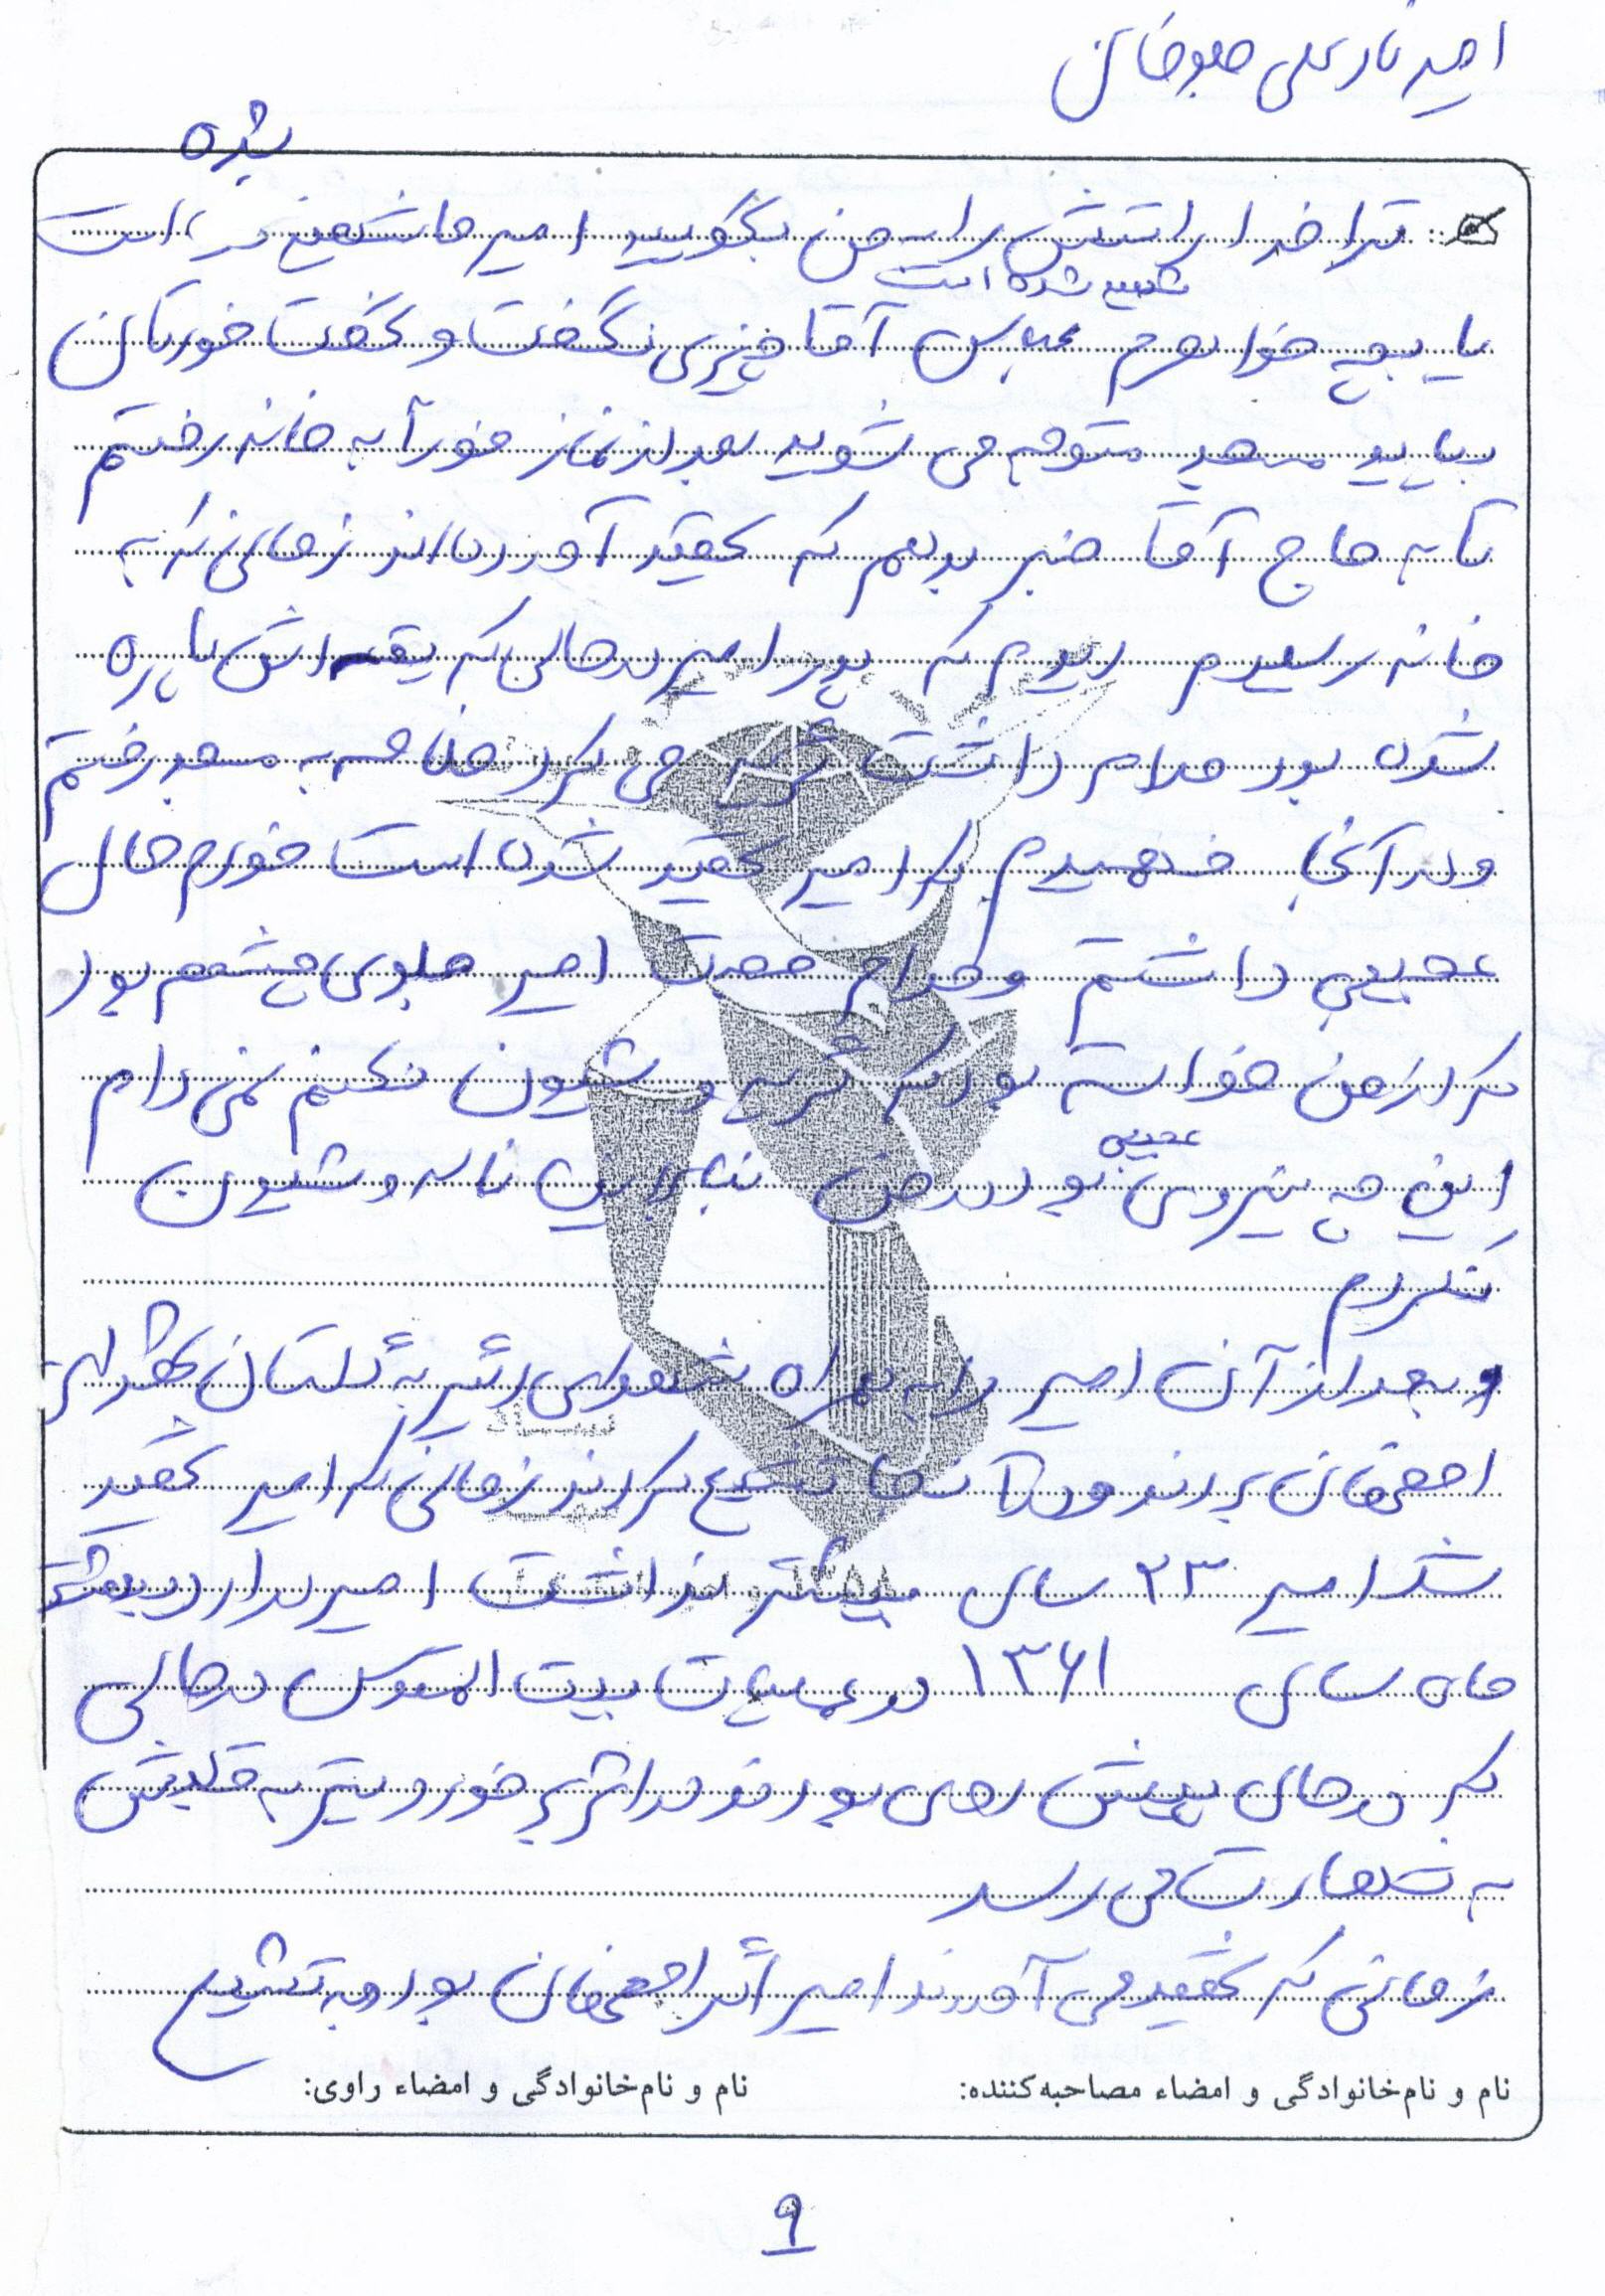 امیر نادعلی صبوحیان
شده
ترا خدا راستش را به من بگویید امیر ما شهید شده است
شهید شده است
یا بچه خواهرم عباس آقا چیزی نگفت و گفت خودتان
بیایید مسجد متوجه می شوید بعد از نماز فوراً به خانه رفتم
تا به حاج آقا خبر بدهم که شهید آورده اند زمانی که به
خانه رسیدم دیدم که پدر امیر در حالی که یقه اش پاره
شده بود مدام داشت گریه می کرد خلاصه به مسجد رفتم
و در آنجا فهمیدم که امیر شهید شده است خودم حال
عجیبی داشتم و مدام صحبت امیر جلوی چشمم بود
که از من خواسته بود که گریه و شیون نکنم نمی دانم
عجیبی
این چه نیرویی بود در من بنابراین ناله و شیون
نکردم
و بعد از آن امیر را به همراه شهدای دیگر به گلستان شهدای
اصفهان بردند و در آنجا تشییع کردند زمانی که امیر شهید
شد امیر ۲۳ سال بیشتر نداشت امیر در اردیبهشت
ماه سال ۱۳۶۱ در عملیات بیت المقدس در حالی
که در حال پیش روی بودند در اثر برخورد تیر به قلبش
به شهادت می رسد
زمانی که شهید می آوردند امیر اگر اصفهان بود به تشییع
نام و نام‌خانوادگی و امضاء مصاحبه‌کننده: نام و نام‌خانوادگی و امضاء راوی:
۹